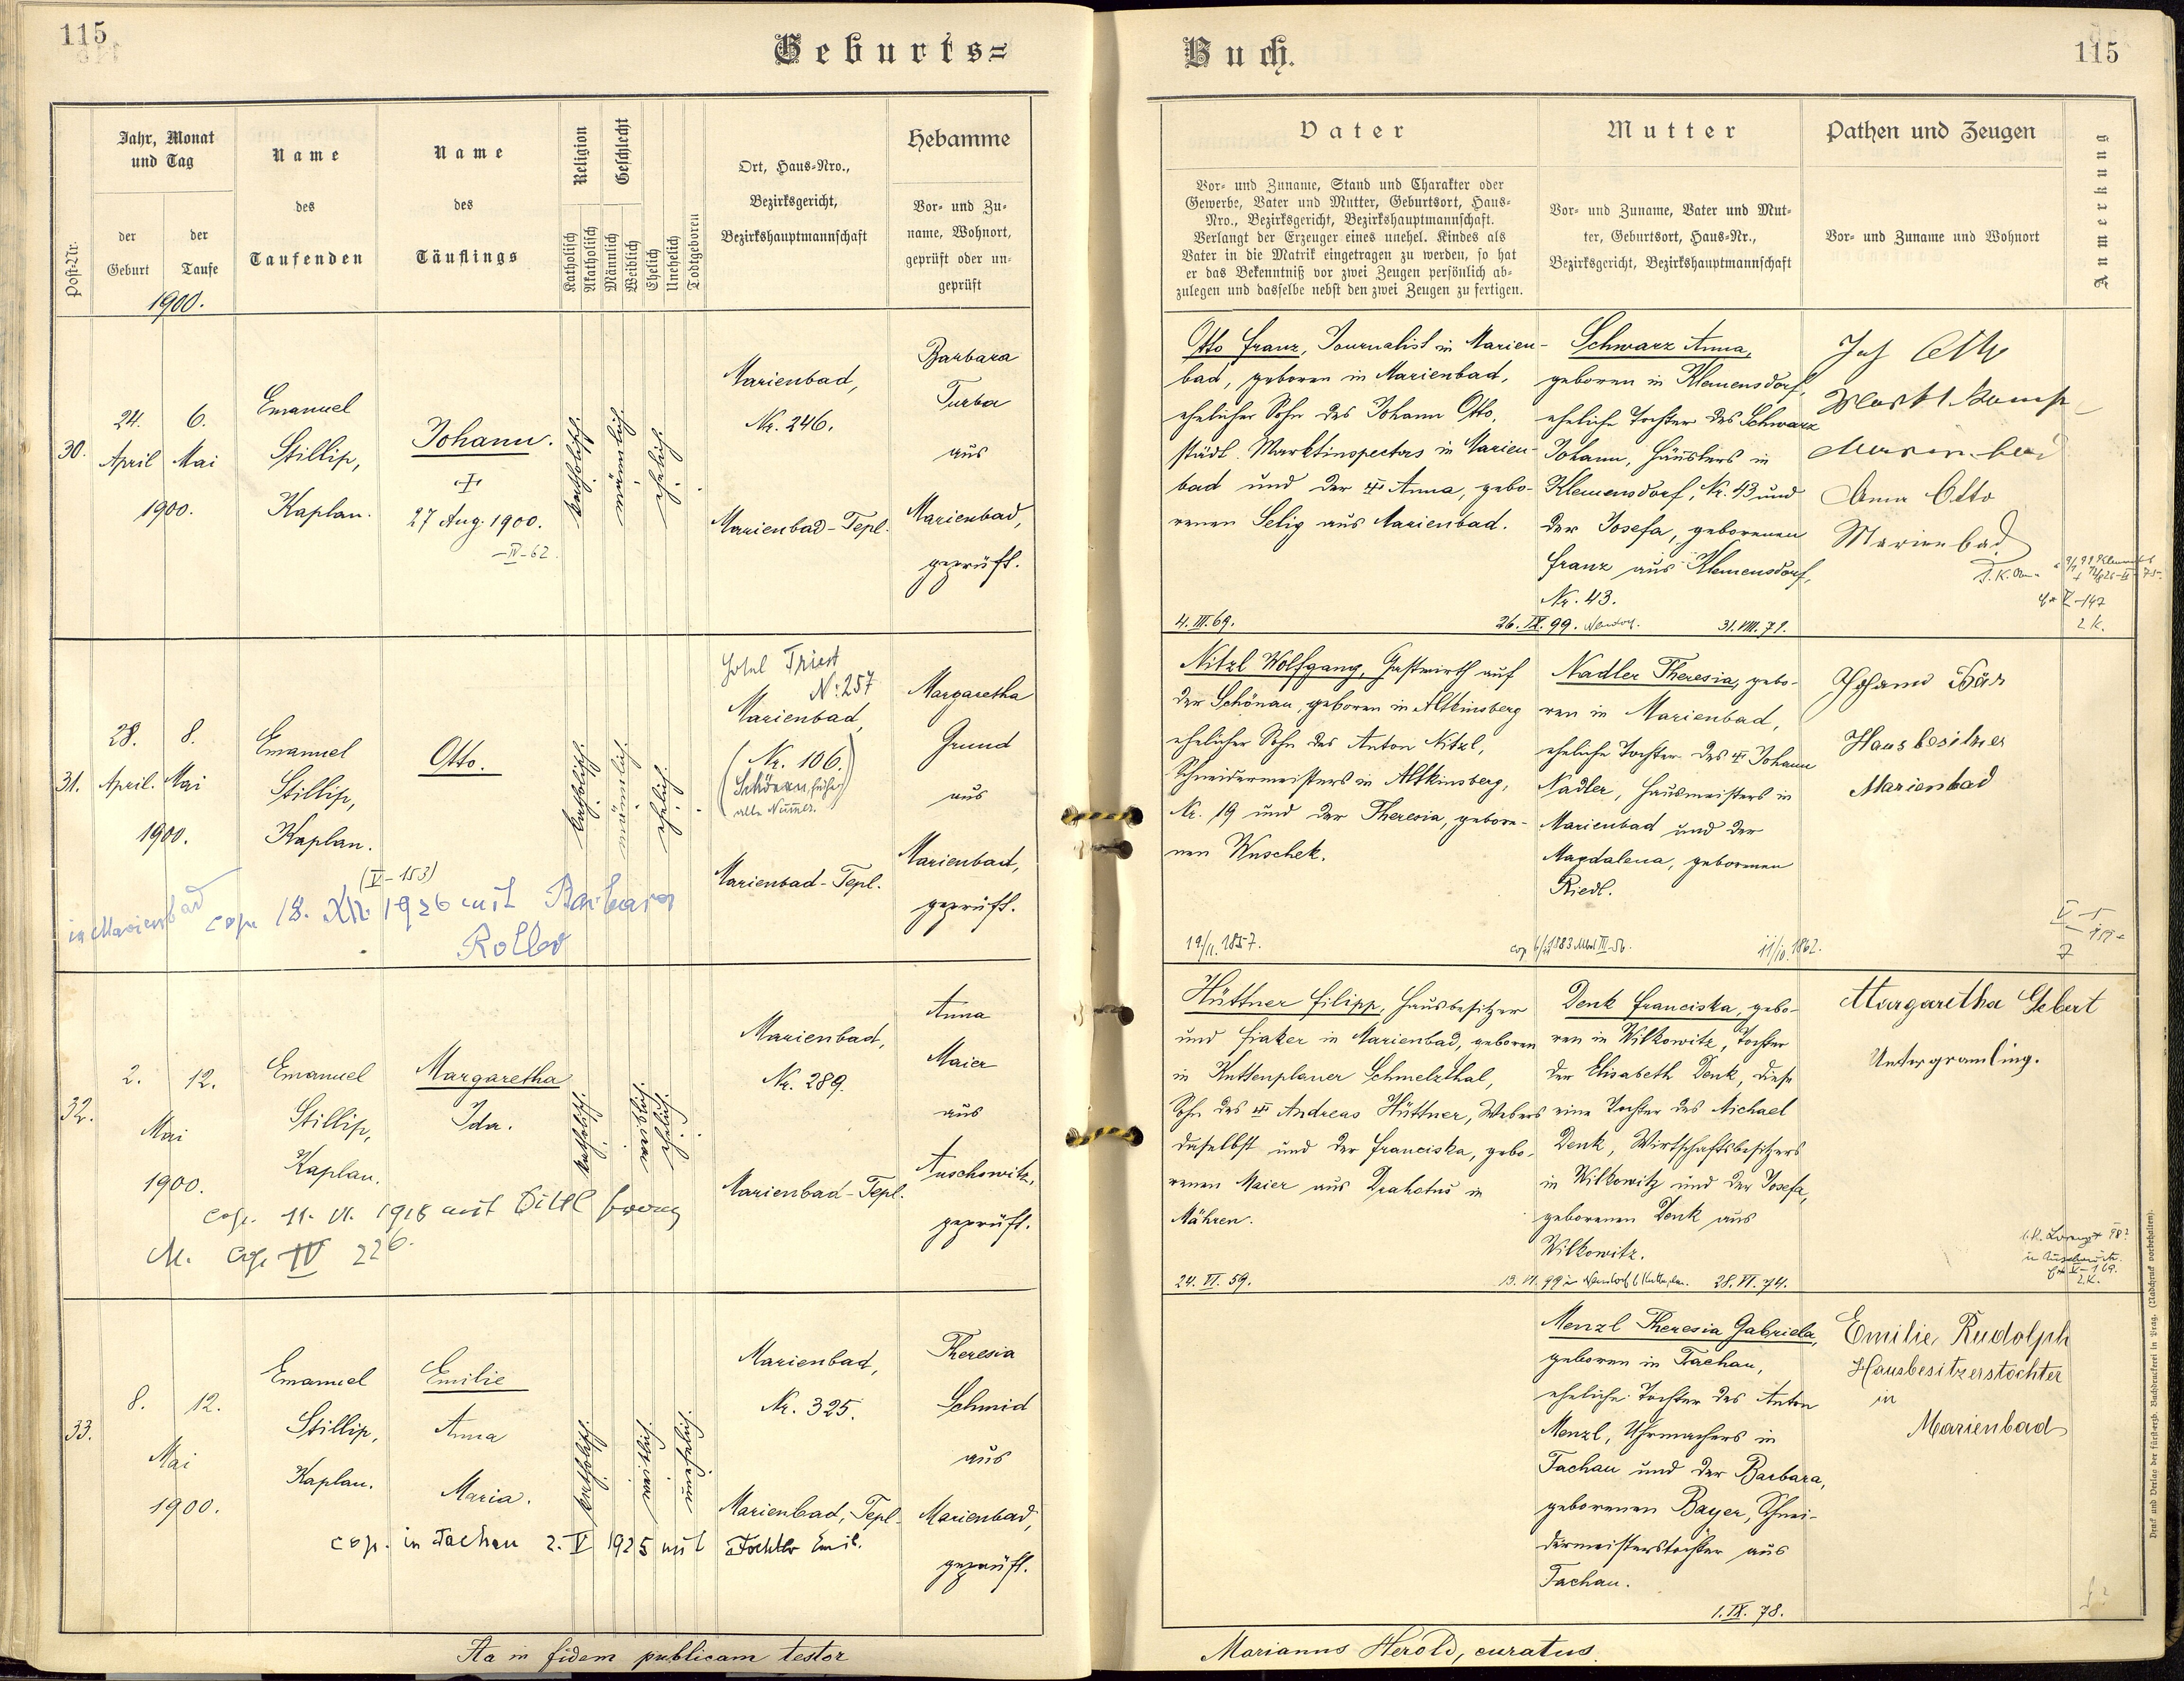 115
Geburts=
Post-Nr.
Jahr, Monat
und Tag
der
Geburt
der
Taufe
1900.
Name
des
Taufenden
Name
des
Täuflings
Religion
Katholisch
Akatholisch
Geschlecht
Männlich
Weiblich
Ehelich
Unehelich
Todtgeboren
Ort, Haus-Nro.,
Bezirksgericht,
Bezirkshauptmannschaft
Hebamme
Vor- und Zu-
name, Wohnort,
geprüft oder un-
geprüft
30.
24.
April
1900.
6.
Mai
Emanuel
Stillip,
Kaplan.
Johann.
27 Aug. 1900.
-IV-62.
katholisch.
männlich.
ehelich.
Marienbad,
Nr. 246.
Marienbad-Tepl.
Barbara
Turba
aus
Marienbad,
geprüft.
31.
28.
April.
1900.
8.
Mai
Emanuel
Stillip,
Kaplan.
Otto.
katholisch.
männlich.
ehelich.
Hotel Triest
N: 257
Marienbad,
(Nr. 106.)
(Schönau, früher)
alte Nummer.
Marienbad-Tepl.
Margaretha
Grund
aus
Marienbad,
geprüft.
(V-153)
in Marienbad cop. 18. XII. 1926 mit Barbara
32.
2.
Mai
1900.
12.
Emanuel
Stillip,
Kaplan.
Margaretha
Ida.
katholisch.
weiblich.
ehelich.
Marienbad,
Nr. 289.
Marienbad-Tepl.
Anna
Maier
aus
Auschowitz,
geprüft.
M. Cop. IV 226.
33.
8.
Mai
1900.
12.
Emanuel
Stillip,
Kaplan.
Emilie
Anna
Maria.
katholisch.
weiblich.
unehelich.
Marienbad,
Nr. 325.
Marienbad, Tepl.
Theresia
Schmid
aus
Marienbad,
geprüft.
cop. in Tachau 2. V 1925 mit
Ita in fidem publicam testor
Buch.
115
Vater
Vor- und Zuname, Stand und Charakter oder
Gewerbe, Vater und Mutter, Geburtsort, Haus-
Nro., Bezirksgericht, Bezirkshauptmannschaft.
Verlangt der Erzeuger eines unehel. Kindes als
Vater in die Matrik eingetragen zu werden, so hat
er das Bekenntniß vor zwei Zeugen persönlich ab-
zulegen und dasselbe nebst den zwei Zeugen zu fertigen.
Mutter
Vor- und Zuname, Vater und Mut-
ter, Geburtsort, Haus-Nr.,
Bezirksgericht, Bezirkshauptmannschaft
Pathen und Zeugen
Vor- und Zuname und Wohnort
Anmerkung
Otto Franz, Journalist in Marien-
bad, geboren in Marienbad,
ehelicher Sohn des Johann Otto,
städt. Marktinspectors in Marien-
bad und der Anna, gebo-
renen Selig aus Marienbad.
4. III. 69.
26. IX. 99.
Schwarz Anna,
geboren in Klemensdorf,
eheliche Tochter des Schwarz
Johann, Häuslers in
Klemensdorf, Nr. 43 und
der Josefa, geborenen
Franz aus Klemensdorf,
Nr. 43.
31. VIII. 71.
Anna Otto
Marienbad
2 K.
Nitzl Wolfgang, Gastwirth auf
der Schönau, geboren in Altkinsberg
ehelicher Sohn des Anton Nitzl,
Schneidermeisters in Altkinsberg,
Nr. 19 und der Theresia, gebore-
nen Wuschek.
19/11. 1857.
Nadler Theresia, gebo-
ren in Marienbad,
eheliche Tochter des Johann
Nadler, Hausmeisters in
Marienbad und der
Magdalena, geborenen
Riedl.
11/10. 1862.
Johann Bär
Hausbesitzer
Marienbad
Hüttner Filipp, Hausbesitzer
und Fiaker in Marienbad, geboren
in Kuttenplaner Schmelzthal,
Sohn des Andreas Hüttner, Webers
daselbst und der Franciska, gebo-
renen Maier aus Drahotus in
Mähren.
24. VI. 59.
Denk Franciska, gebo-
ren in Wilkowitz, Tochter
der Elisabeth Denk, diese
eine Tochter des Michael
Denk, Wirtschaftsbesitzers
in Wilkowitz und der Josefa,
geborenen Denk aus
Wilkowitz.
28. VI. 74.
Margaretha Gebert
Untergramling.
2 K.
Menzl Theresia Gabriela,
geboren in Tachau,
eheliche Tochter des Anton
Menzl, Uhrmachers in
Tachau und der Barbara,
geborenen Bayer, Schnei-
dermeisterstochter aus
Tachau.
1. IX. 78.
Emilie Rudolph
Hausbesitzerstochter
in
Marienbad
Marianus Herold, curatus.
Druck und Verlag der fürsterzb. Buchdruckerei in Prag. (Nachdruck vorbehalten).